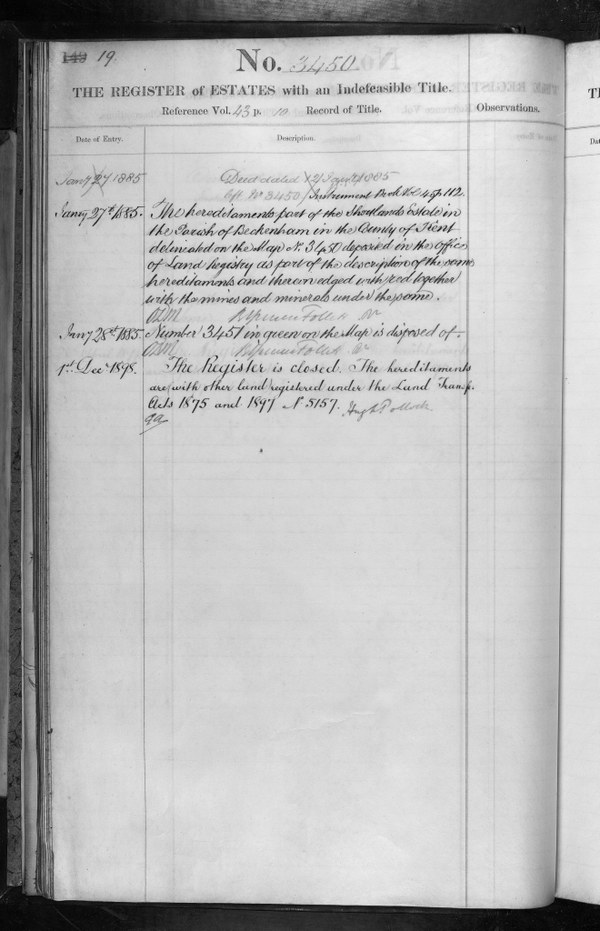 149 19.
No. 3450.
THE REGISTER of ESTATES with an Indefeasible Title.
Reference Vol. 43 p. 19 Record of Title.
Observations.
Date of Entry.
Description.
Jany 27 1885
Deed dated 21 Jany 1885
3450 / Instrument Book Vol 45 p. 112.
Jany 27th 1885. The hereditaments part of the Shortlands Estate in
the Parish of Beckenham in the County of Kent
delineated on the Map No. 3450 deposited in the Office
of Land Registry as part of the description of the same
hereditaments and thereon edged with red together
with the mines and minerals under the same.
Jany 28th 1885. Number 3451 in green on the Map is disposed of.
1st Decr 1898. The Register is closed. The hereditaments
are, with other land registered under the Land Transfr.
Acts 1875 and 1897 No 5157. Hugh Pollock